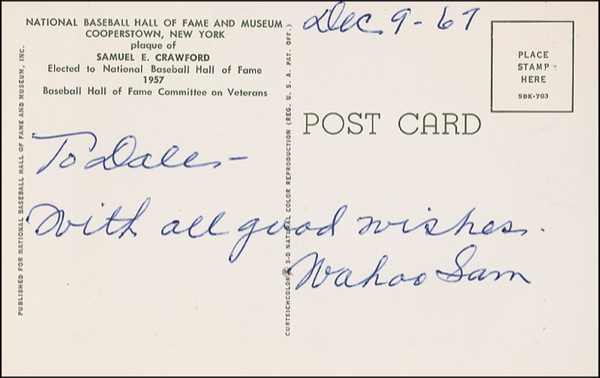 NATIONAL BASEBALL HALL OF FAME AND MUSEUM
COOPERSTOWN, NEW YORK
plaque of
SAMUEL E. CRAWFORD
Elected to National Baseball Hall of Fame
1957
Baseball Hall of Fame Committee on Veterans
PUBLISHED FOR NATIONAL BASEBALL HALL OF FAME AND MUSEUM, INC.
CURTEICHCOLOR® 3-D NATURAL COLOR REPRODUCTION (REG. U. S. A. PAT. OFF.)
Dec 9-67
PLACE
STAMP
HERE
5DK-703
POST CARD
To Dale-
With all good wishes.
Wahoo Sam